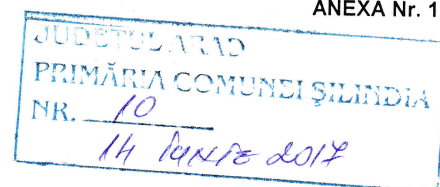 ANEXA Nr. 1
JUDEȚUL ARAD
PRIMĂRIA COMUNEI ȘILINDIA
NR. 10
14 IUNIE 2017